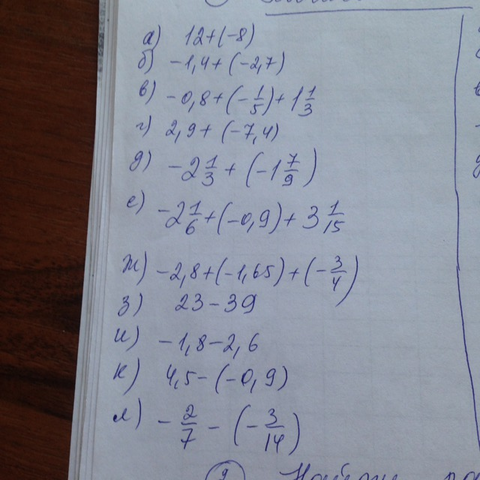 а) 12+(-8)
б) -1,4+(-2,7)
в) -0,8+(-1/5)+1 1/3
г) 2,9+(-7,4)
д) -2 1/3+(-1 7/9)
е) -2 1/6+(-0,9)+3 1/15
ж) -2,8+(-1,65)+(-3/4)
з) 23-39
и) -1,8-2,6
к) 4,5-(-0,9)
л) -2/7-(-3/14)